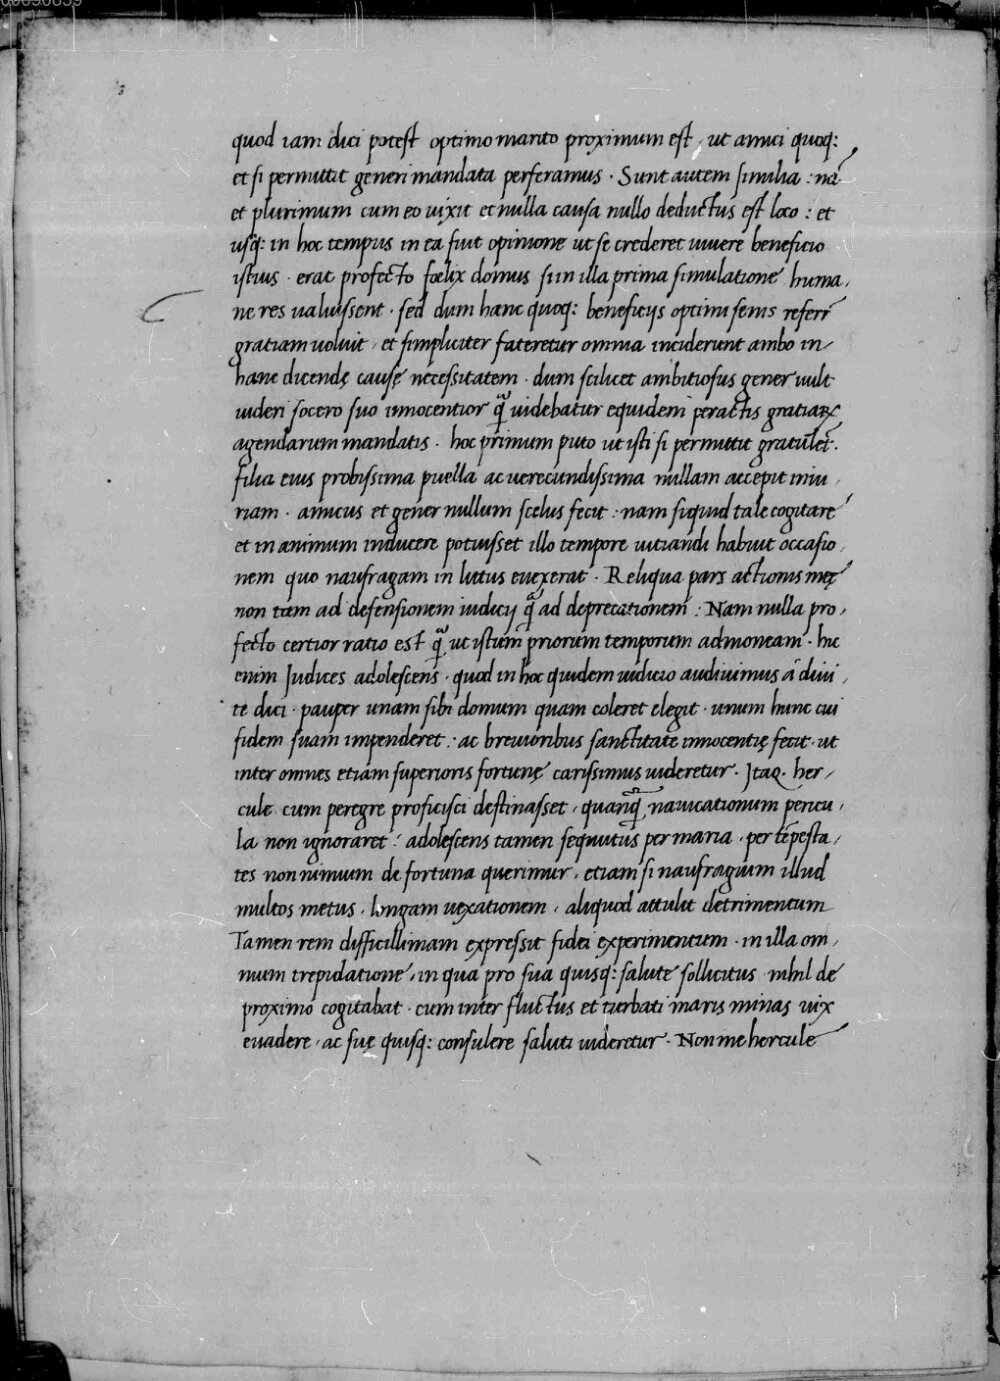 quod iam dici potest optimo marito proximum est, ut amici quoq:
et si permittit generi mandata perferamus · Sunt autem similia : nā
et plurimum cum eo uixit et nulla causa nullo deductus est loco : et
usq: in hoc tempus in ea fuit opinione ut se crederet uiuere beneficio
istius · erat profecto fœlix domus si in illa prima simulatione huma,
ne res ualuissent · sed dum hanc quoq: beneficijs optimi senis referr̄
gratiam uoluit, et simpliciter fateretur omnia inciderunt ambo in
hanc dicendę causę necessitatem · dum scilicet ambitiosus gener uult
uideri socero suo innocentior q̄ uidebatur equidem peractis gratiaꝝ
agendarum mandatis · hoc primum puto ut isti si permittit gratulet̄.
filia eius probissima puella ac uerecundissima nullam accepit iniu,
riam · amicus et gener nullum scelus fecit : nam siquid tale cogitare
et in animum inducere potuisset illo tempore uitiandi habuit occasio,
nem quo naufragam in littus euexerat · Reliqua pars actionis męę
non tam ad defensionem iudicij q̄ ad deprecationem : Nam nulla pro,
fecto certior ratio est q̄ ut istum priorum temporum admoneam · hic
enim Judices adolescens · quod in hoc quidem iudicio audiuimus á diui,
te dici · pauper unam sibi domum quam coleret elegit · unum hunc cui
fidem suam impenderet : ac breuioribus sanctitate innocentię fecit · ut
inter omnes etiam superioris fortunę carissimus uideretur · Itaq. her,
cule cum peregre proficisci destinasset, quanq̄ nauicationum pericu,
la non ignoraret : adolescens tamen sequutus per maria · per tēpesta,
tes non nimium de fortuna querimur, etiam si naufragium illud
multos metus, longam uexationem, aliquod attulit detrimentum
Tamen rem difficillimam expressit fidei experimentum · in illa om,
nium trepidatione, in qua pro sua quisq: salute sollicitus nihil de
proximo cogitabat · cum inter fluctus et turbati maris minas uix
euadere, ac suę quisq: consulere saluti uideretur · Non me hercule